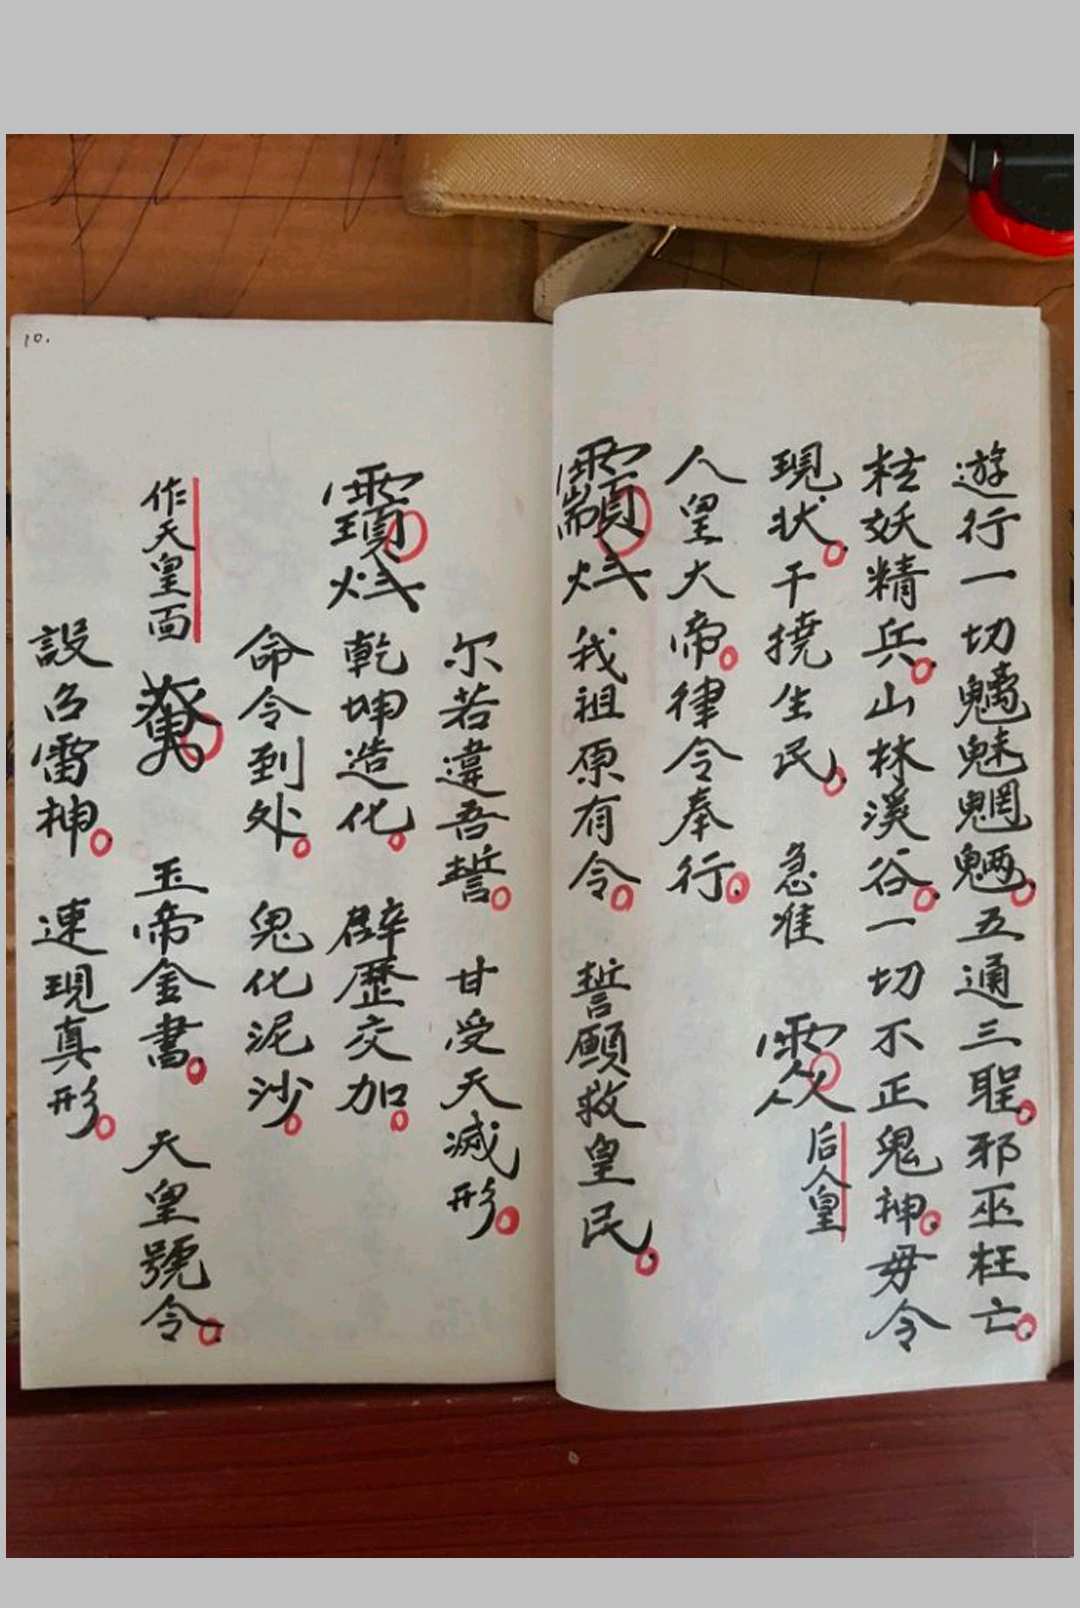 遊行一切魑魅魍魎五通三聖邪巫枉亡
妖精兵山林溪谷一切不正鬼神毋令
現狀干撓生民 急准 后人皇
人皇大帝律令奉行
我祖原有令 誓願救皇民
尔若違吾誓 甘受天滅形
乾坤造化 霹靂交加
命令到处 鬼化泥沙
作天皇面 玉帝金書 天皇號令
設召雷神 速現真形
10.